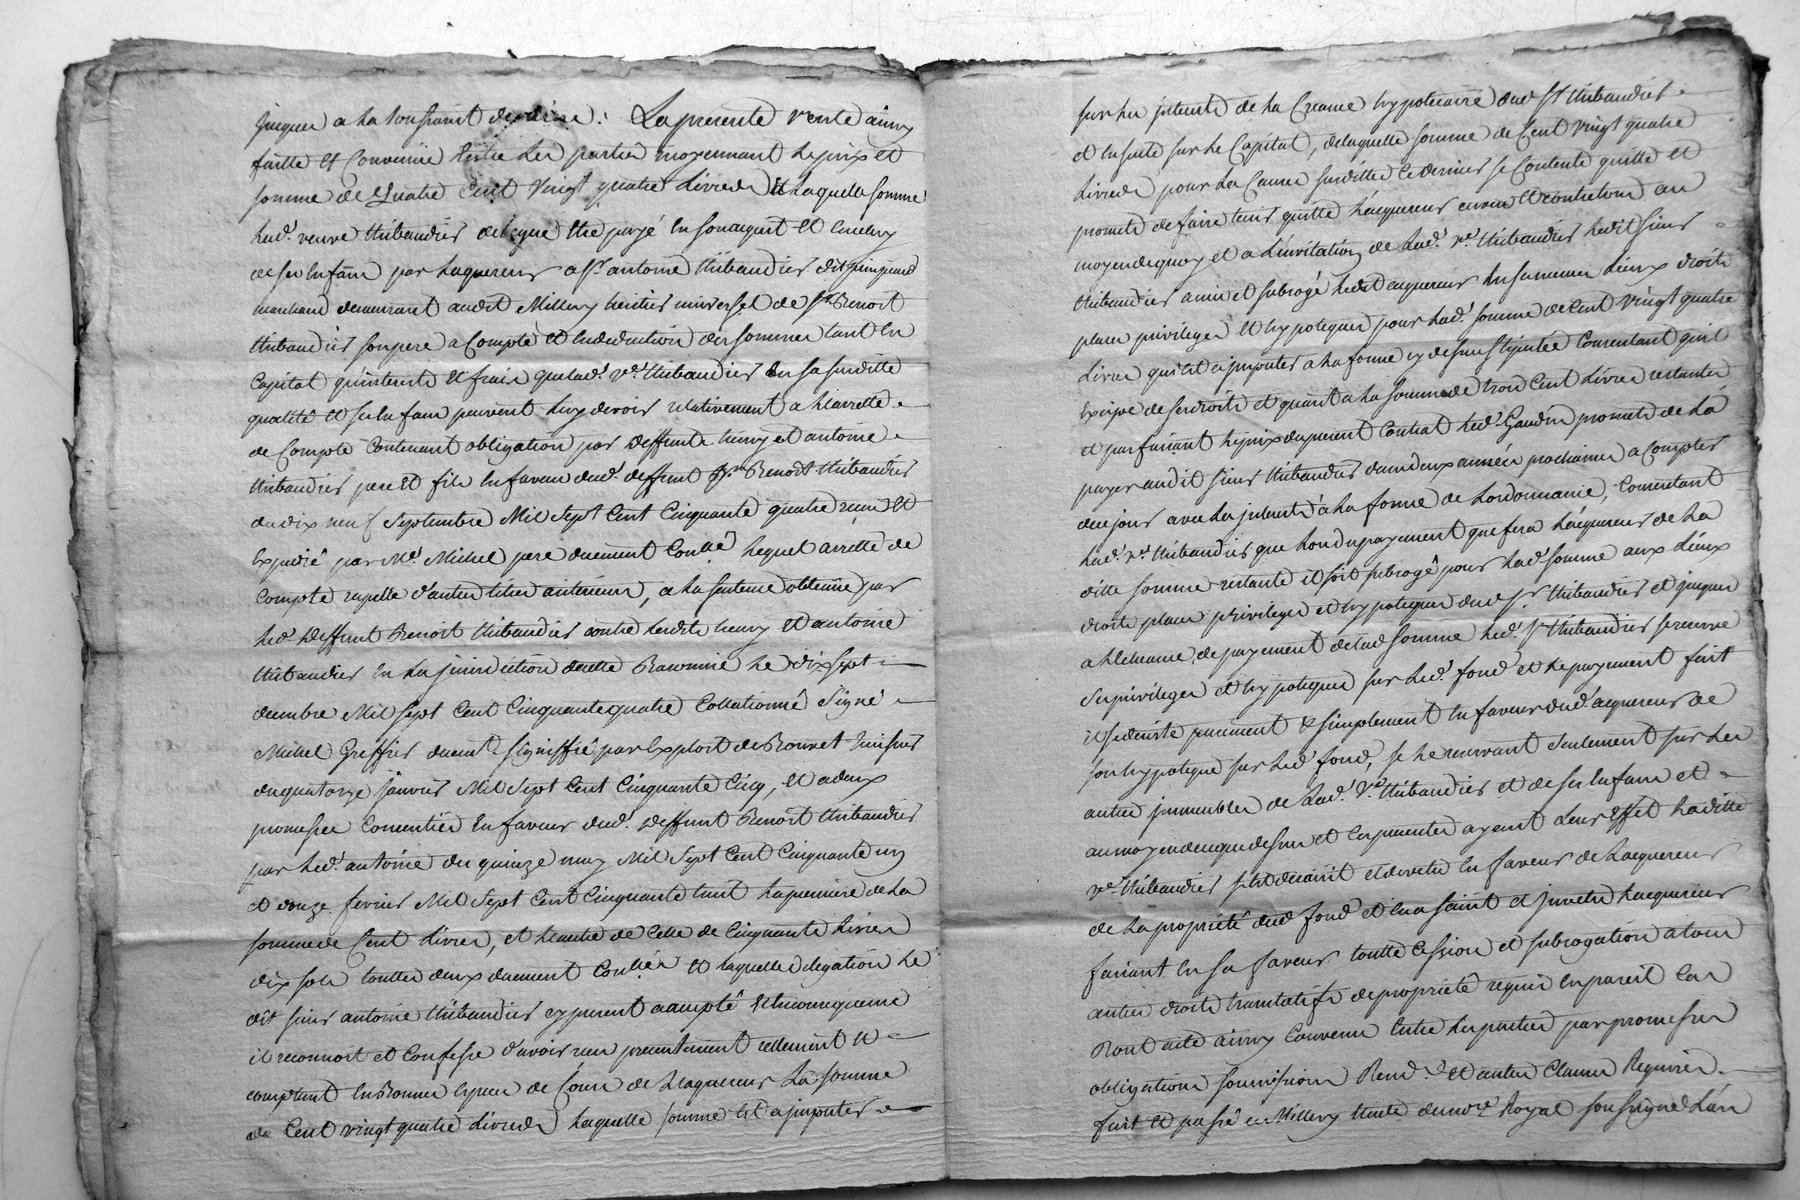 jusques a la toussaint derniere. La presente vente ainsy
faitte et Convenüe entre les parties moyennant le prix et
somme de Quatre Cent Vingt quatre Livres laquelle somme
lad.e veuve thibaudier delegue etre payé en son acquit et
de ses Enfans par Lacquereur a sr antoine thibaudier dit
marchand demeurant audit Millery heritier universel de sr Benoit
thibaudier son pere a Compte et en deduction des sommes tant en
Capital qu'interets et frais que lad.e v.e thibaudier en sa susditte
qualité et ses Enfans peuvent luy devoir relativement a l'arretté
de Compte Contenant obligation par deffunts henry et antoine
thibaudier pere et fils en faveur dud. deffunt sr Benoit thibaudier
du dix neuf Septembre Mil Sept Cent Cinquante quatre reçu et
Expedié par Me. Michel pere duement Contlé lequel arretté de
Compte rapelle d'autres titres anterieurs, a la sentence obtenüe par
led. deffunt Benoit thibaudier contre lesdits henry et antoine
thibaudier en la jurisdiction de cette Baronnie le dix sept
decembre Mil Sept Cent Cinquante quatre Collationné Signé
Michel Greffier duemt. signiffié par Exploit de Bonnet huissier
du quatorze janvier Mil Sept Cent Cinquante Cinq, et a deux
promesses Consenties en faveur dud. deffunt Benoit thibaudier
par led. antoine du quinze may Mil Sept Cent Cinquante un
et douze fevrier Mil Sept Cent Cinquante huit la premiere de la
somme de Cent Livres, et l'autre de Celle de Cinquante Livres
dix sols touttes deux duement Contlées et laquelle delegation le
dit sieur antoine thibaudier cy present a accepté et en consequence
il reconnoit et Confesse d'avoir reçu presentement reellement et
comptant en Bonnes especes de Cours de Lacquereur La somme
de Cent vingt quatre Livres Laquelle somme est a imputer
sur les interets de la Creance hypotecaire dud. sr thibaudier
et ensuite sur le Capital, de laquelle somme de Cent vingt quatre
Livres pour la Cause susditte ce dernier se Contente quitte et
promets de faire tenir quitte Lacquereur envers et contre tous au
moyen de quoy et a L'invitation de Lad.e v.e thibaudier ledit sieur
thibaudier a mis et subrogé ledit acquereur en ses memes Lieux droits
places privileges et hypoteques pour lad.e somme de Cent Vingt quatre
Livres qui est a imputer a la forme cy dessus stipulée Consentant qu'il
Excipe de ses droits et quant a la somme de trois Cent Livres restantes
et parfaisant le prix du present Contrat led. Gaudin promets de la
payer audit sieur thibaudier dans deux années prochaines a Compter
de ce jour avec les interets a la forme de Lordonnance, Consentant
lad.e v.e thibaudier que lors du payement que fera Lacquereur de la
ditte somme restante il soit subrogé pour lad.e somme aux Lieux
droits places privileges et hypoteques dud. sr thibaudier et jusques
a l'Echeance de payement de lad.e somme led. sr thibaudier se reserve
ses privileges et hypoteques sur led. fond et le payement fait
il se desiste purement et simplement en faveur dud. acquereur de
son hypoteque sur led. fond, se le reservant seulement sur les
autres immeubles de Lad.e v.e thibaudier et de ses Enfans et
au moyen de que dessus et les presentes ayant Leur Effet laditte
v.e thibaudier s'est demis et devetu en faveur de Lacquereur
de la proprieté dud. fond et en a saisit et investu Lacquereur
faisant en sa faveur toutte Cession et subrogation a tous
autres droits translatifs de proprieté requis en pareil Cas
Dont acte ainsy Convenu Entre les parties par promesses
obligations soumissions Rend. et autres Clauses Requises.
fait et passé a Millery etude du nore Royal soussigné L'an